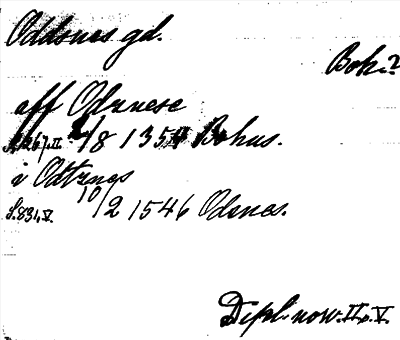 Oddsnes gd.
Boh.?
aff Odznese
S. 267. II. 2/8 1354 Bohus.
i Odtznes
S. 831, V. 10/2 1546 Odsnes.
Dipl. norv. II. V.